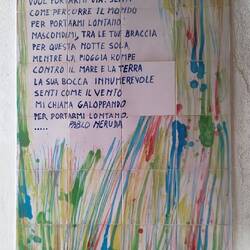 VUOL PORTARMI VIA. SENTI
COME PERCORRE IL MONDO
PER PORTARMI LONTANO.
NASCONDIMI, TRA LE TUE BRACCIA
PER QUESTA NOTTE SOLA,
MENTRE LA PIOGGIA ROMPE
CONTRO IL MARE E LA TERRA
LA SUA BOCCA INNUMEREVOLE
SENTI COME IL VENTO
MI CHIAMA GALOPPANDO
PER PORTARMI LONTANO.
.....
PABLO NERUDA